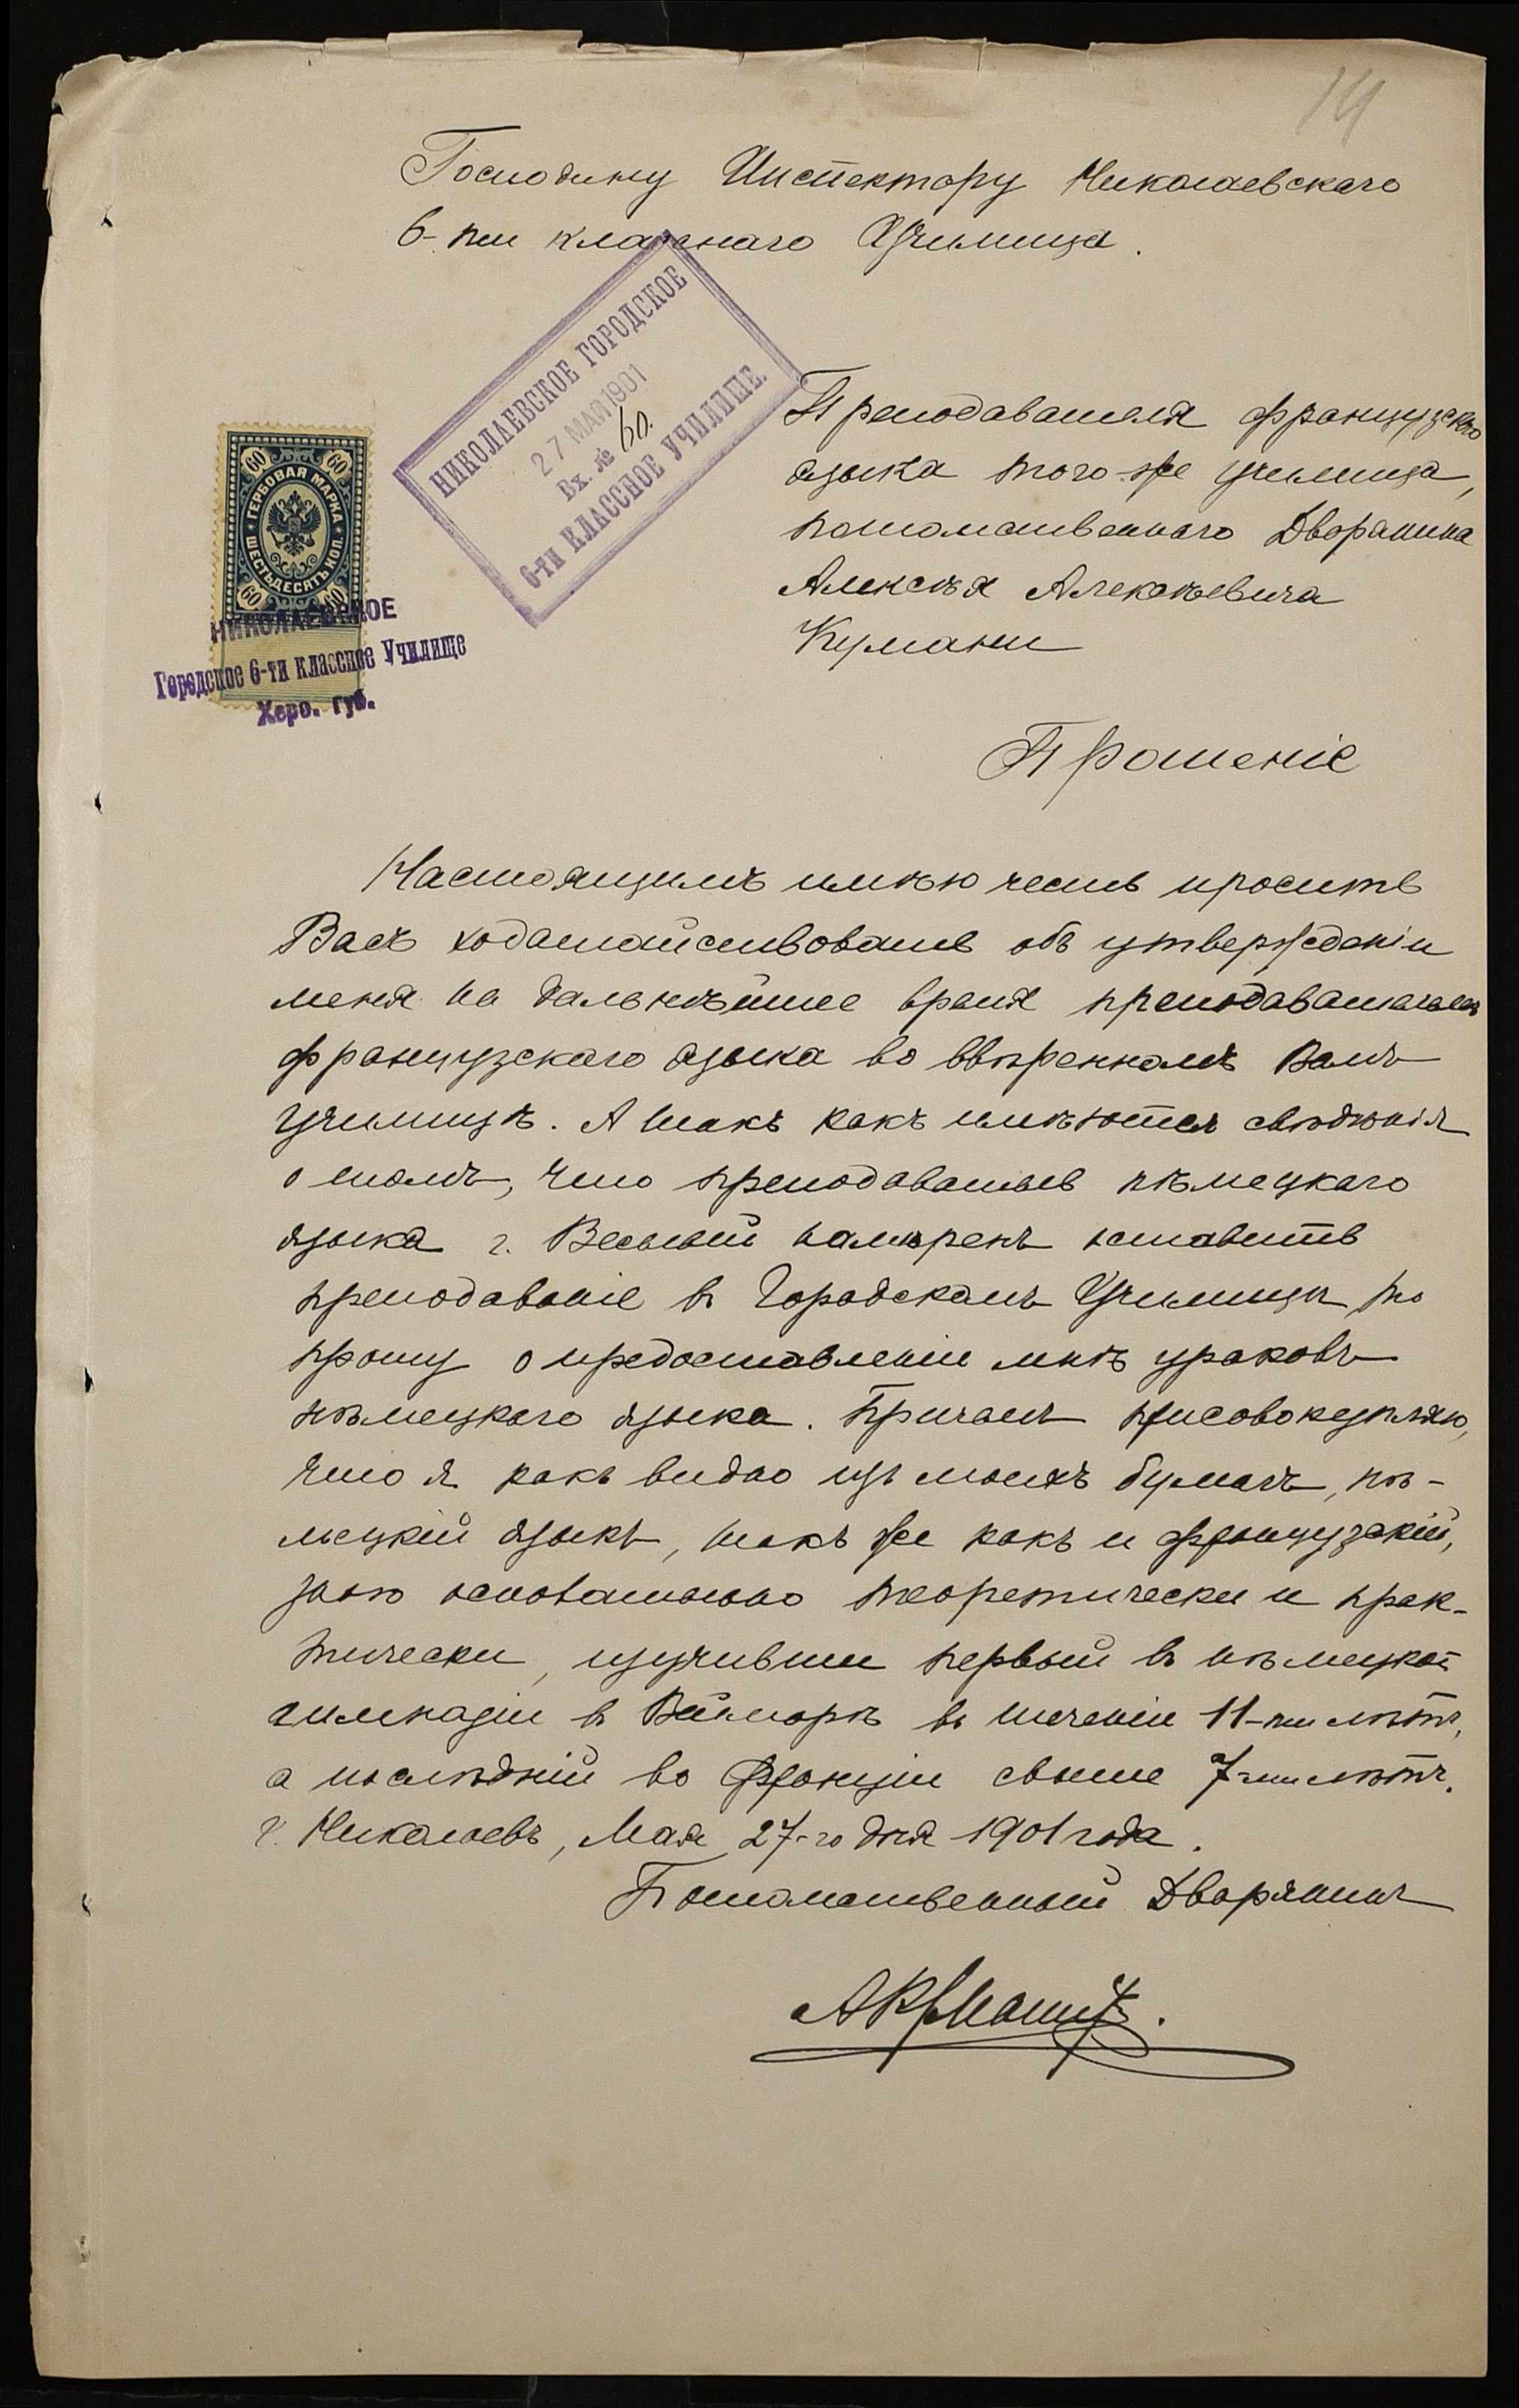 14
Господину Инспектору Николаевскаго
6-ти класснаго Училища.
НИКОЛАЕВСКОЕ ГОРОДСКОЕ
27 МАЯ 1901
Вх. № 60.
6-ТИ КЛАССНОЕ УЧИЛИЩЕ.
60 60
ГЕРБОВАЯ МАРКА
ШЕСТЬДЕСЯТЪ КОП.
60 60
НИКОЛАЕВСКОЕ
Городское 6-ти классное Училище
Херс. губ.
Преподавателя французскаго
языка того-же училища,
потомственнаго Дворянина
Алексѣя Алексѣевича
Кумани
Прошеніе
Настоящимъ имѣю честь просить
Васъ ходатайствовать объ утвержденіи
меня на дальнѣйшее время преподавателемъ
французскаго языка во ввѣренномъ Вамъ
училищѣ. А такъ какъ имѣются свѣдѣнія
о томъ, что преподаватель нѣмецкаго
языка г. намѣренъ оставить
преподаваніе въ Городскомъ Училищѣ, то
прошу о предоставленіи мнѣ уроковъ
нѣмецкаго языка. Причемъ присовокупляю,
что я какъ видно изъ моихъ бумагъ, нѣ-
мецкій языкъ, такъ же какъ и французскій,
знаю основательно теоретически и прак-
тически, изучивши первый въ нѣмецкой
гимназіи въ Веймарѣ въ теченіи 11-ти лѣтъ,
а послѣдній во Франціи свыше 7-ми лѣтъ.
г. Николаевъ, Мая 27-го дня 1901 года.
Потомственный Дворянинъ
АКумани.